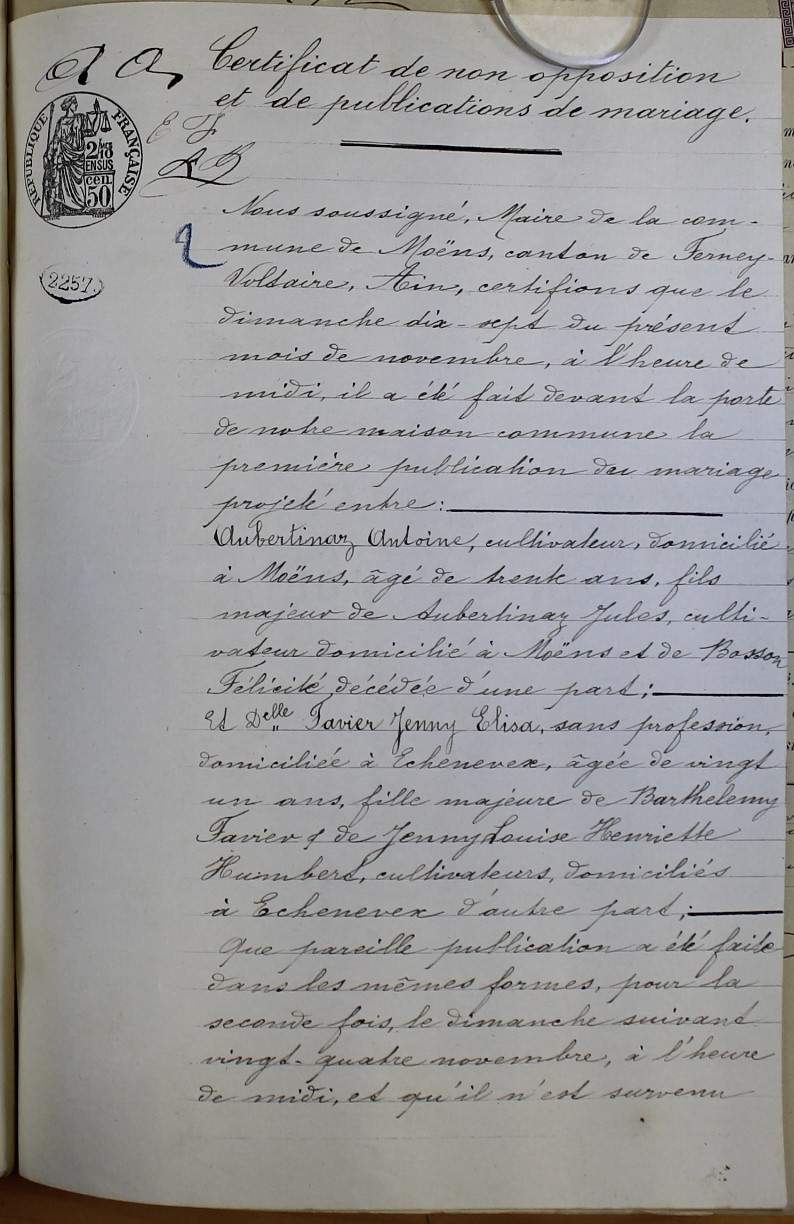 A A
Certificat de non opposition
et de publications de mariage.
RÉPUBLIQUE FRANÇAISE
2/48 EN SUS
cen. 50
E F
A B
2257.
Nous soussigné, Maire de la com-
mune de Moëns, canton de Ferney-
Voltaire, Ain, certifions que le
dimanche dix-sept du présent
mois de novembre, à l'heure de
midi, il a été fait devant la porte
de notre maison commune la
première publication du mariage
projeté entre:
Aubertinaz Antoine, cultivateur, domicilié
à Moëns, âgé de trente ans, fils
majeur de Aubertinaz Jules, culti-
vateur domicilié à Moëns et de Bosson
Félicité, décédée d'une part;
Et Delle Favier Jenny Elisa, sans profession,
domiciliée à Echenevex, âgée de vingt
un ans, fille majeure de Barthelemy
Favier & de Jenny Louise Henriette
Humbert, cultivateurs, domiciliés
à Echenevex d'autre part;
Que pareille publication a été faite
dans les mêmes formes, pour la
seconde fois, le dimanche suivant
vingt-quatre novembre, à l'heure
de midi, et qu'il n'est survenu